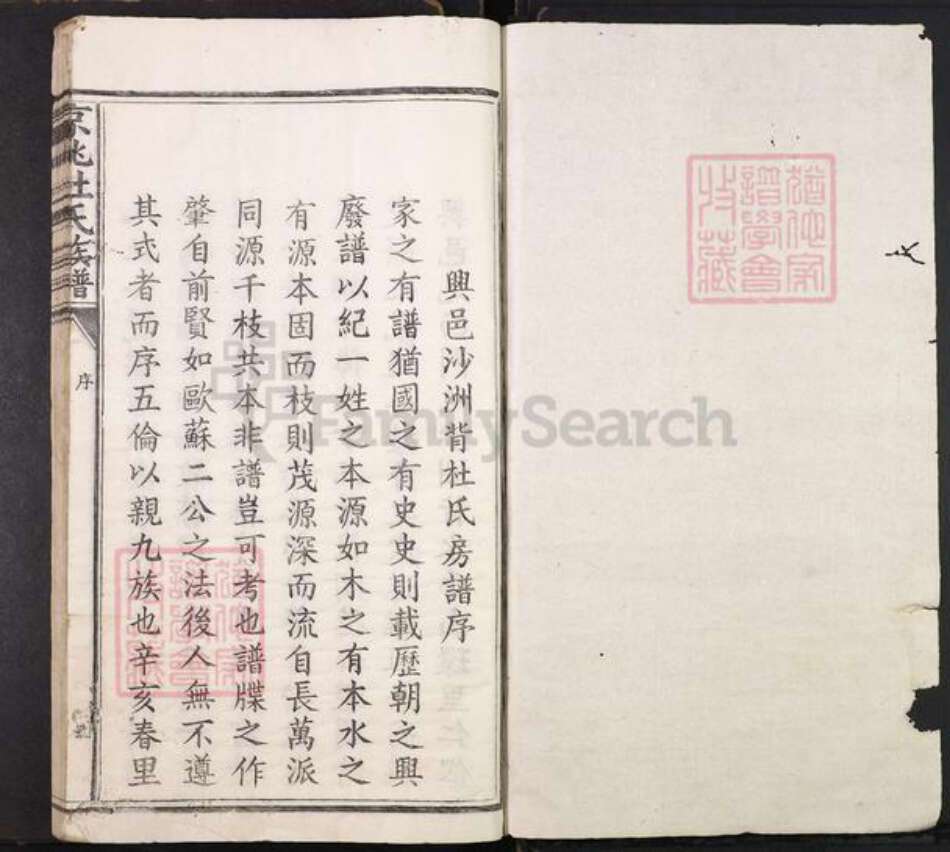 猶他家
譜學會
收藏
興邑沙洲背杜氏房譜序
家之有譜猶國之有史史則載歷朝之興
廢譜以紀一姓之本源如木之有本水之
有源本固而枝則茂源深而流自長萬派
同源千枝共本非譜豈可考也譜牒之作
肇自前賢如歐蘇二公之法後人無不遵
其式者而序五倫以親九族也辛亥春里
京兆杜氏族譜
序
猶他家
譜學會
收藏
FamilySearch